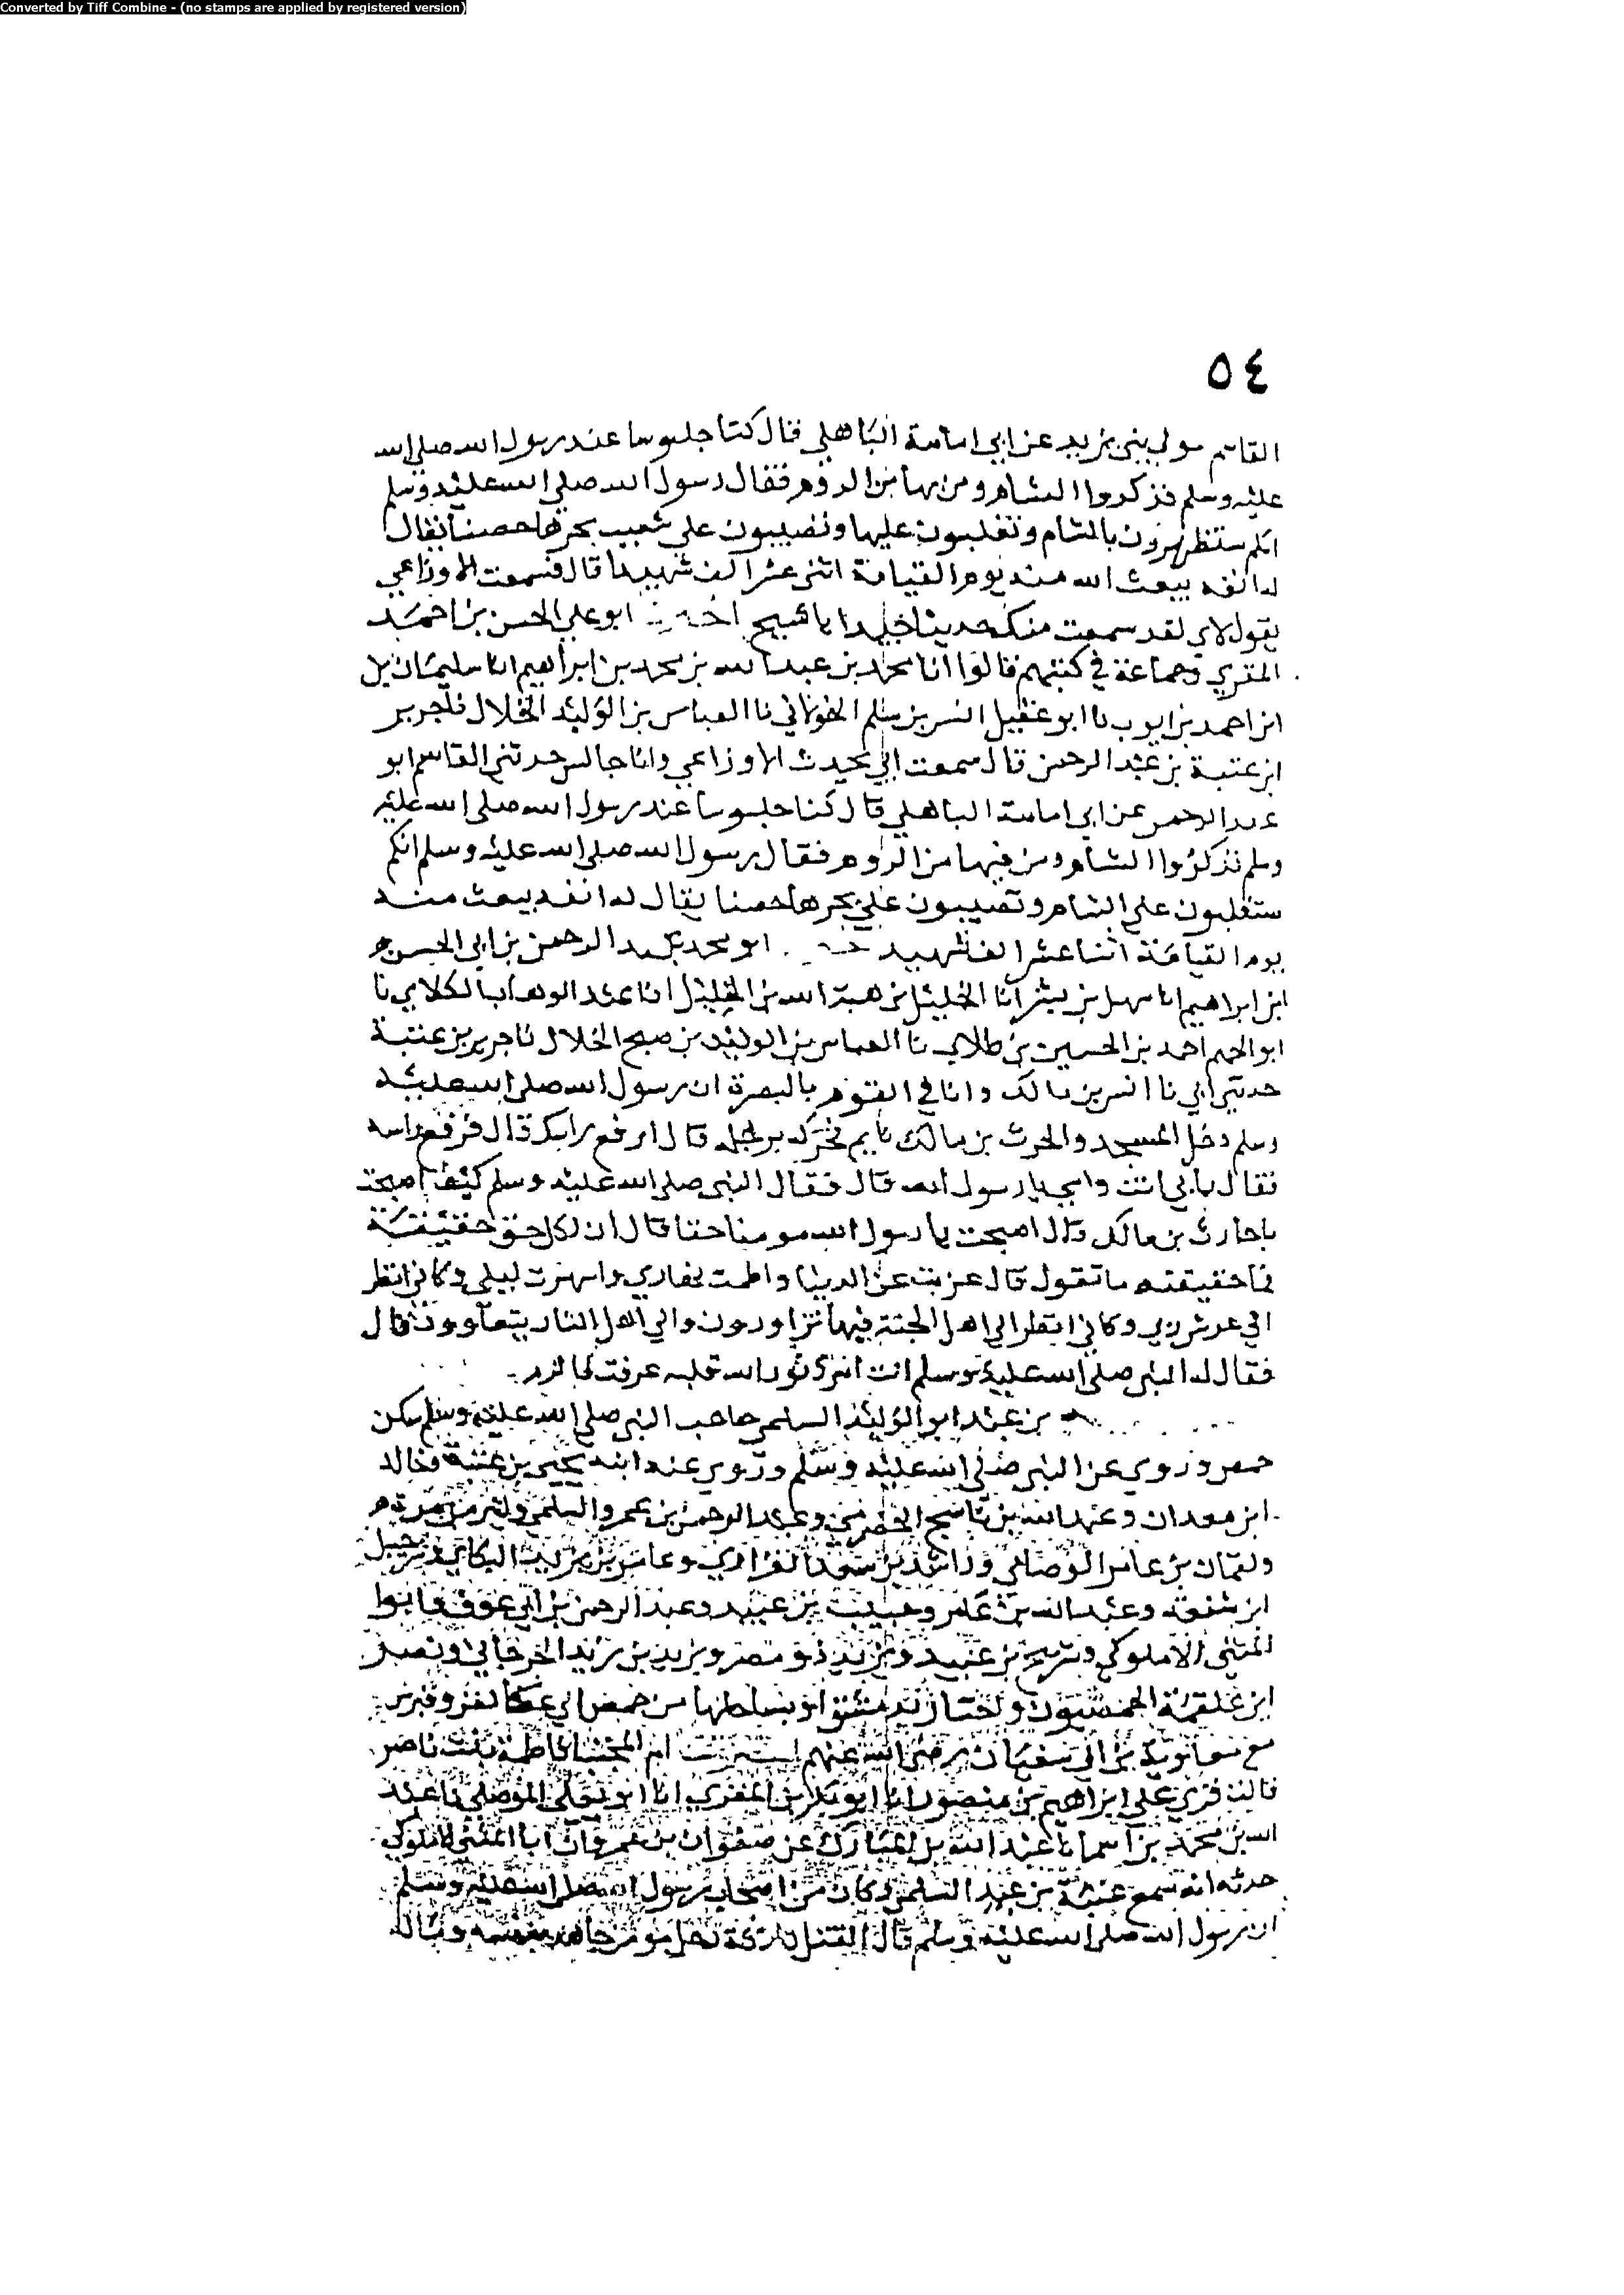 Converted by Tiff Combine - (no stamps are applied by registered version)
٥٤
القاسم مولى بني يزيد عن ابي امامة الباهلي قال كنا جلوسا عند رسول الله صلى الله
عليه وسلم فذكروا الشام ومن بها من الروم فقال رسول الله صلى الله عليه وسلم
انكم ستظهرون بالشام وتغلبون عليها وتصيبون على بحرها حصنا يقال
له انفه يبعث الله منه يوم القيامة اثنى عشر الف شهيد قال فسمعت الاوزاعي
يقول لابي لقد سمعت منك حديثا جيدا يا شيخ ابو علي الحسن بن احمد
المقري وجماعة في كتبهم قالوا انا محمد بن عبد الله بن محمد بن ابراهيم انا سليمان بن
ابن احمد بن ايوب نا ابو عقيل انس بن سلم الخولاني نا العباس بن الوليد الخلال نا جرير
ابن عتبة بن عبد الرحمن قال سمعت ابي يحدث الاوزاعي وانا جالس حدثني القاسم ابو
عبد الرحمن عن ابي امامة الباهلي قال كنا جلوسا عند رسول الله صلى الله عليه
وسلم فذكروا الشام ومن فيها من الروم فقال رسول الله صلى الله عليه وسلم انكم
ستغلبون على الشام وتصيبون على بحرها حصنا يقال له انفه يبعث منه
يوم القيامة اثنا عشر الف شهيد ابو محمد عبد الرحمن بن ابي الحسن
ابن ابراهيم انا سهل بن بشر انا الخليل بن هبة الله بن الخليل انا عبد الوهاب الكلابي نا
ابو الجهم احمد بن الحسين بن طلاب نا العباس بن الوليد بن صبح الخلال نا جرير بن عتبة
حدثني ابي نا انس بن مالك وانا في القوم بالبصرة ان رسول الله صلى الله عليه
وسلم دخل المسجد والحرث بن مالك نايم فحركه برجله قال ارفع راسك قال فرفع راسه
فقال بابي انت وامي يا رسول الله قال فقال النبي صلى الله عليه وسلم كيف اصبحت
يا حارث بن مالك قال اصبحت يا رسول الله مومنا حقا قال ان لكل حق حقيقة
فما حقيقته ما تقول قال عزبت عن الدنيا واظمت نهاري واسهرت ليلي وكاني انظر
الى عرش ربي وكاني انظر الى اهل الجنة فيها يتزاورون والى اهل النار يتعاوون قال
فقال له النبي صلى الله عليه وسلم انت امرؤ نور الله قلبه عرفت فالزم
بن عبد ابو الوليد السلمي صاحب النبي صلى الله عليه وسلم سكن
حمص وروى عن النبي صلى الله عليه وسلم وروى عنه ابنه يحيى بن عتبة وخالد
ابن معدان وعبد الله بن ناسج الحضرمي وعبد الرحمن بن عمرو السلمي وكثير بن مرة
ولقمان بن عامر الوصابي وراشد بن سعد وعامر بن زيد البكالي وشرحبيل
ابن شفعة وعبد الله بن عامر وحبيب بن عبيد وعبد الرحمن بن ابي عوف وابو
المثنى الاملوكي وشريح بن عبيد ويزيد ذو مصر ويزيد بن زيد ونصر
ابن علقمة الحمصيون واجتاز بدمشق او بساحلها من حمص الى عكا لغزو قبرس
مع معاوية بن ابي سفيان رضي الله عنهم ام المجتبا فاطمة بنت ناصر
قالت قري على ابراهيم بن منصور انا ابو بكر بن المقري انا ابو يعلى الموصلي نا عبد
الله بن محمد بن اسما نا عبد الله بن المبارك عن صفوان بن عمرو ان ابا المثنى الاملوكي
حدثه انه سمع عتبة بن عبد السلمي وكان من اصحاب رسول الله صلى الله عليه وسلم
ان رسول الله صلى الله عليه وسلم قال القتلى ثلاثة رجل مومن جاهد بنفسه وماله